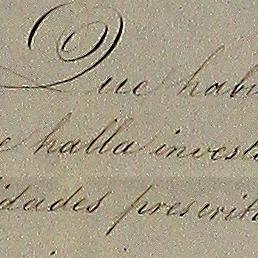 Que habi
e halla invest
idades prescrit